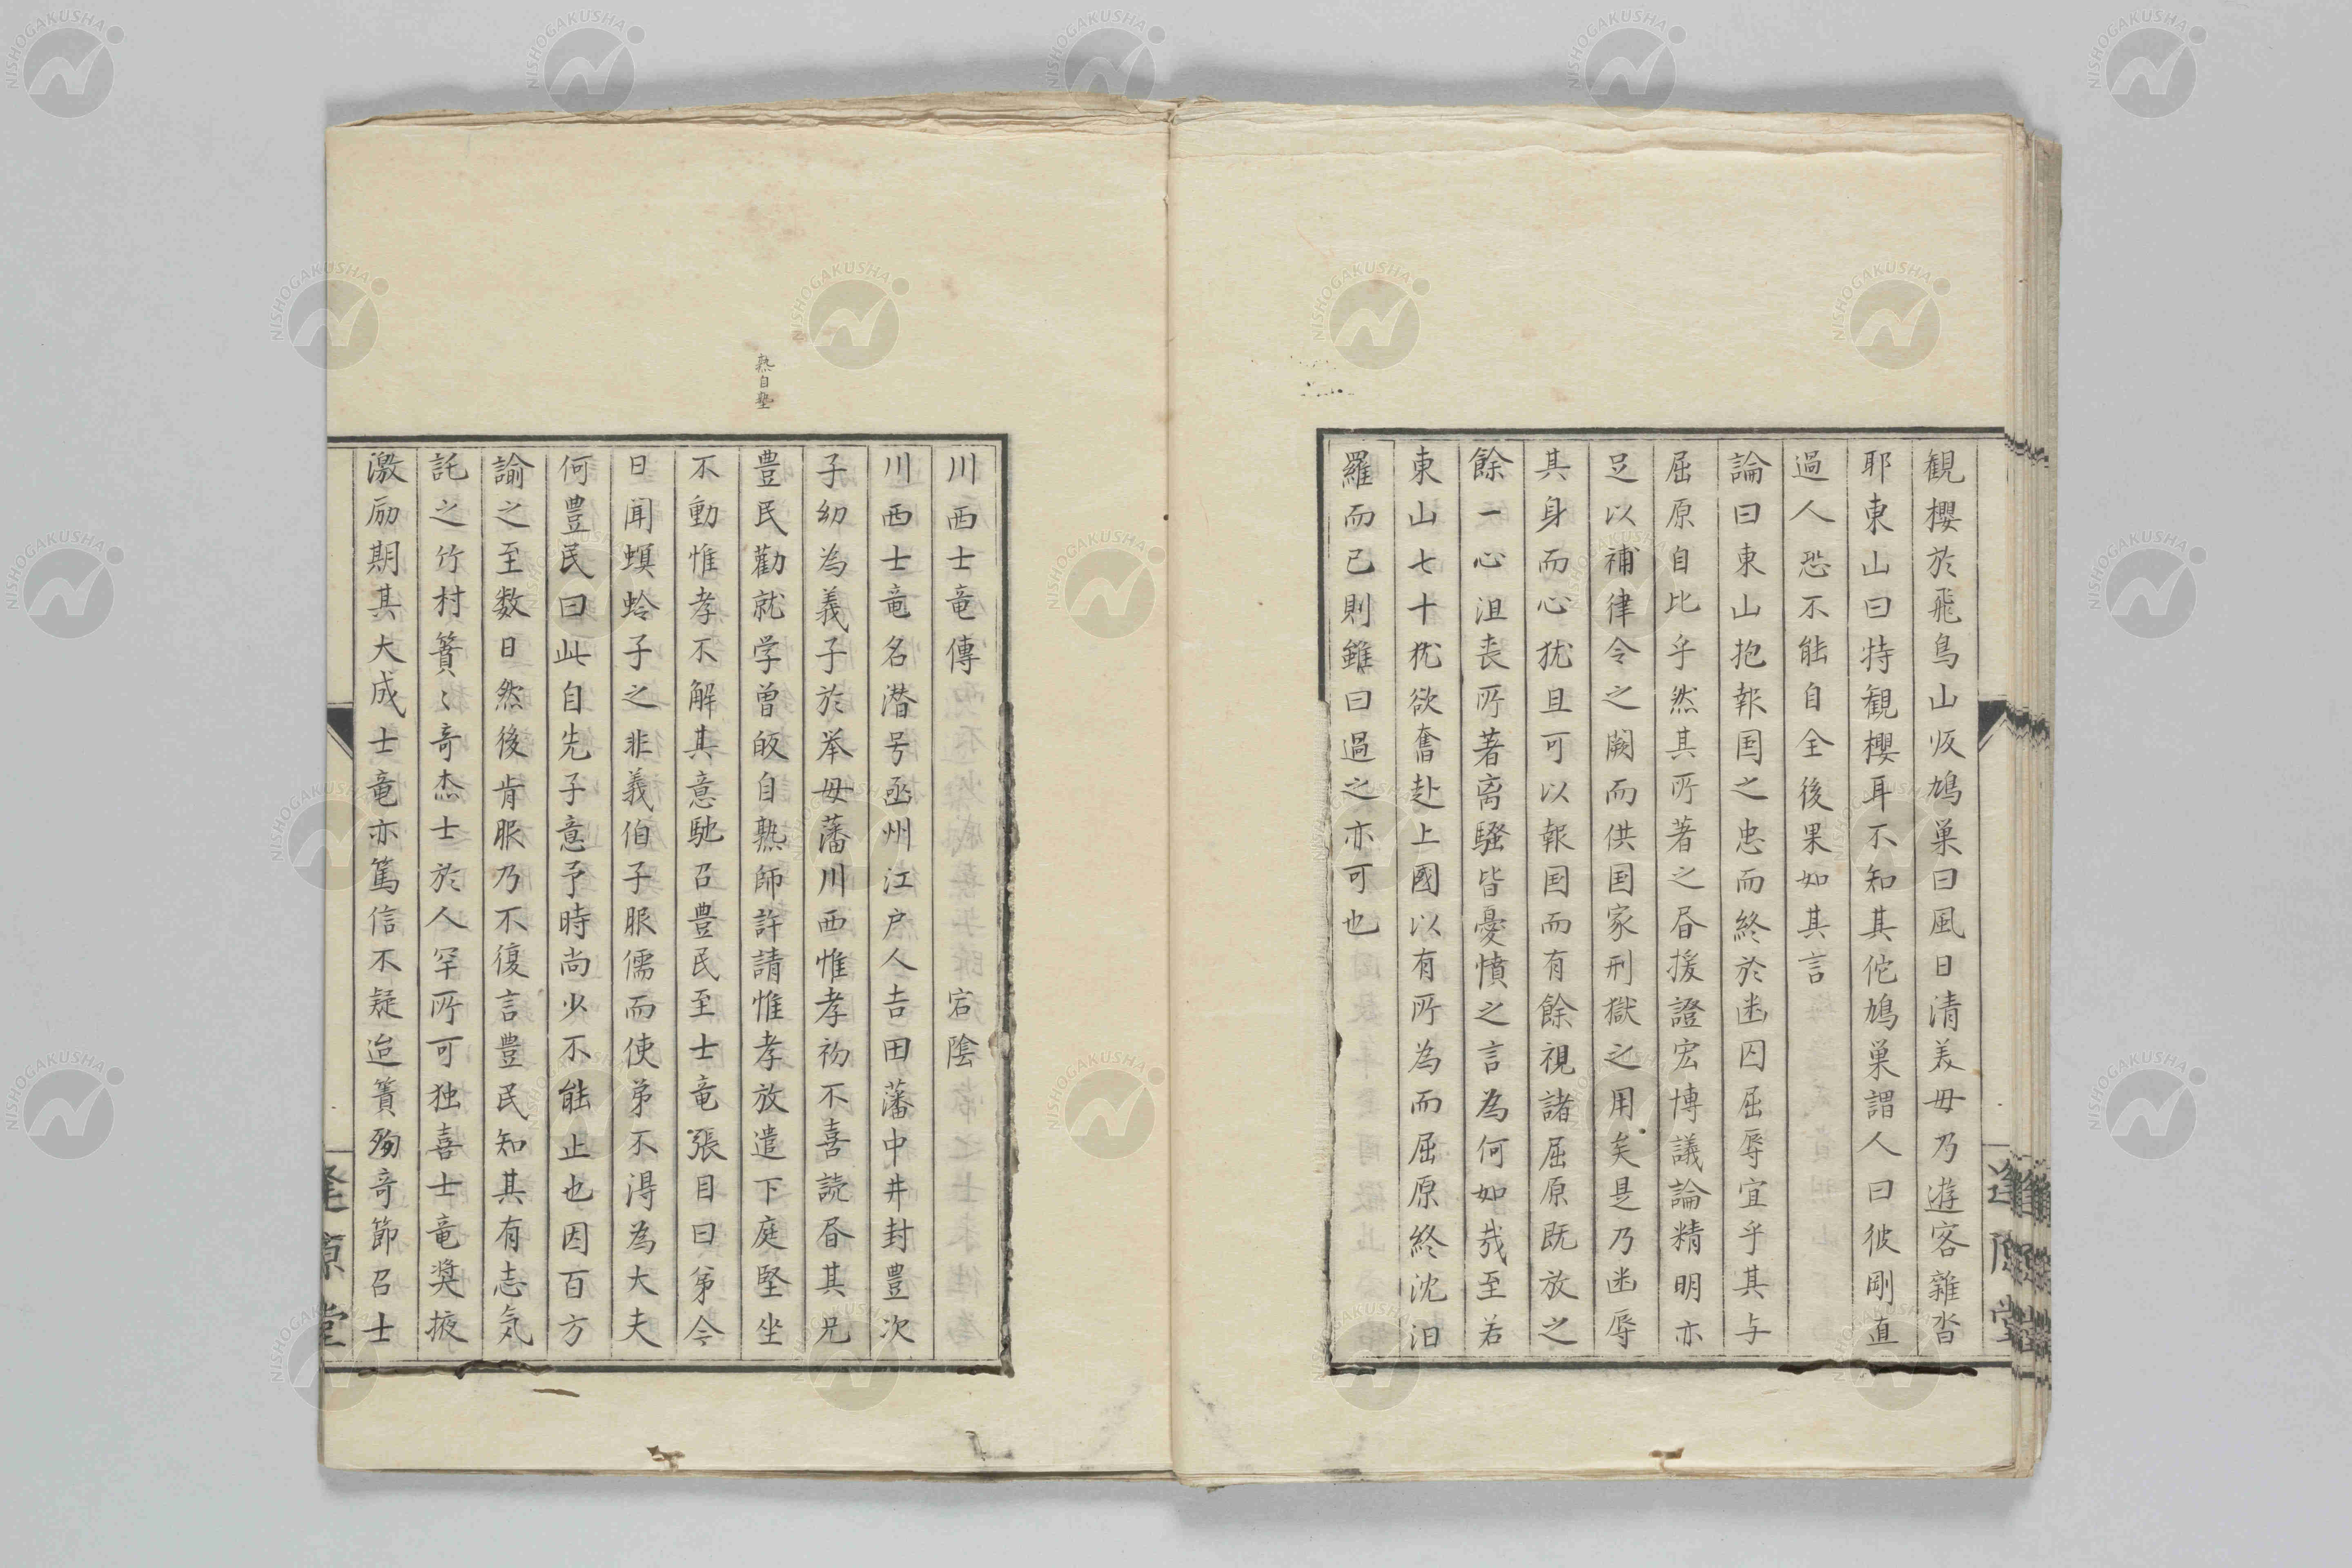 観櫻於飛鳥山㱕鳩巣曰風日清美毋乃遊客雜沓
耶東山曰特観櫻耳不知其佗鳩巣謂人曰彼剛直
過人恐不能自全後果如其言
論曰東山抱報国之忠而終於幽囚屈辱宜乎其与
屈原自比乎然其所著之昏援證宏博議論精明亦
足以補律令之闕而供国家刑獄之用矣是乃幽辱
其身而心犹且可以報国而有餘視諸屈原既放之
餘一心沮丧所著离騷皆憂憤之言為何如㢤至若
東山七十犹欲奮赴上國以有所為而屈原終沈汨
羅而已則雖曰過之亦可也
逢原堂
熟自塾
川西士竜傳 宕陰
川西士竜名潜号函州江戸人吉田藩中井封豊次
子幼為義子於挙母藩川西惟孝初不喜読昏其兄
豊民勸就学曽皈自熟師許請惟孝放遣下庭堅坐
不動惟孝不解其意馳召豊民至士竜張目曰弟今
日聞螟蛉子之非義伯子服儒而使弟不淂為大夫
何豊民曰此自先子意予時尚少不能止也因百方
諭之至数日然後肯服乃不復言豊民知其有志気
託之竹村簣〻奇杰士於人罕所可独喜士竜奨掖
激励期其大成士竜亦篤信不疑迨簣殉奇節召士
逢原堂